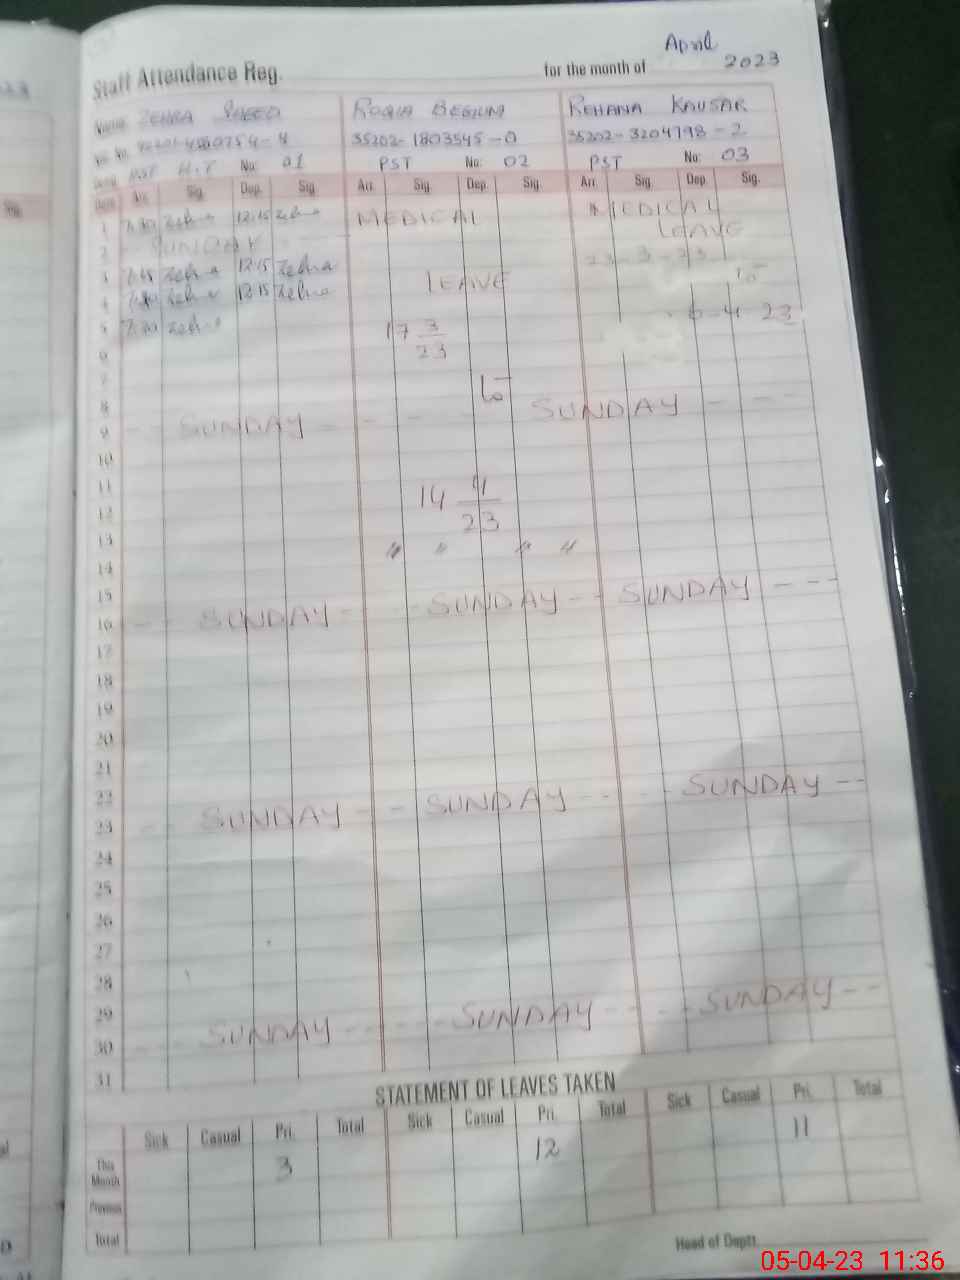 April
Staff Attendance Reg. for the month of 2023
Name ZEHRA SAEED ROQIA BEGIUM REHANA KAUSAR
35202-1803545-0 35202-3204798-2
PST H.T No: 01 PST No: 02 PST No: 03
Date Arr. Sig. Dep. Sig. Arr. Sig. Dep. Sig. Arr. Sig. Dep. Sig.
1 7:30 Zehra 12:15 Zehra MEDICAL MEDICAL
2 SUNDAY LEAVE
3 7:45 Zehra 12:15 Zehra LEAVE 23-3-23
4 7:30 Zehra 12:15 Zehra to
5 7:30 Zehra 17 3/23 6-4-23
6
7 to
8 SUNDAY
9 -- SUNDAY - - -
10
11
12 14 4/23
13 " " " "
14
15 SUNDAY ---
16 -- SUNDAY - -- SUNDAY --
17
18
19
20
21
22 SUNDAY --
23 -- SUNDAY -- SUNDAY --
24
25
26
27
28
29 SUNDAY --
30 --- SUNDAY --- SUNDAY --
31
STATEMENT OF LEAVES TAKEN
Sick Casual Pri. Total Sick Casual Pri. Total Sick Casual Pri. Total
This Month 3 12 11
Previous
Total
Head of Deptt.
05-04-23 11:36